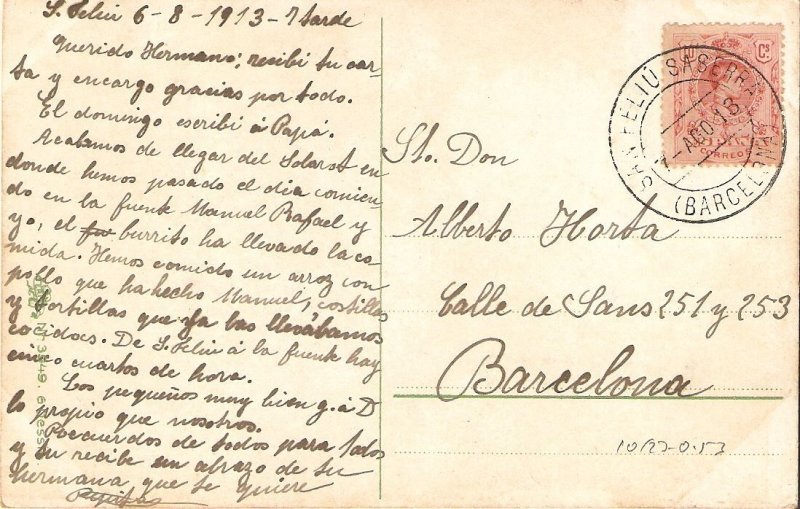 S. Feliu 6-8-1913-7 tarde
Querido Hermano; recibí tu car-
ta y encargo gracias por todo.
El domingo escribí á Papá.
Acabamos de llegar del Solarot en
donde hemos pasado el dia comien
do en la fuente Manuel Rafael y
yo, el burrito ha llevado la co-
mida. Hemos comido un arroz con
pollo que ha hecho Manuel, costillas
y tortillas que ya las llevábamos
cocidas. De S. Feliu á la fuente hay
cinco cuartos de hora.
Los pequeños muy bien g. á D
lo propio que nosotros.
Recuerdos de todos para todos
y tu recibe un abrazo de tu
hermana que te quiere
Pepita
CS
CORREOS
SAN FELIÚ SASERRA
7-AGO 13
(BARCELONA)
Sr. Don
Alberto Horta
Calle de Sans 251 y 253
Barcelona
3549.